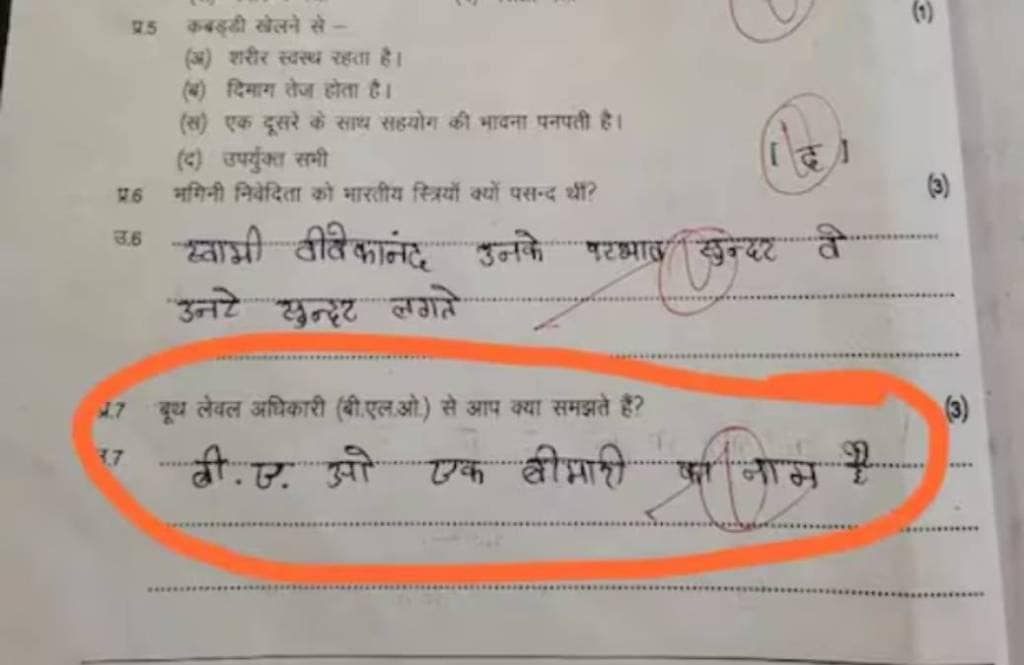 (1)
प्र.5 कबड्डी खेलने से –
(अ) शरीर स्वस्थ रहता है।
(ब) दिमाग तेज होता है।
(स) एक दूसरे के साथ सहयोग की भावना पनपती है।
(द) उपर्युक्त सभी [ द ]
प्र.6 भगिनी निवेदिता को भारतीय स्त्रियाँ क्यों पसन्द थीं? (3)
उ.6 स्वामी वीवेकानंद उनके परभाव सुन्दर वे
उनरे सुन्दर लगते
प्र.7 बूथ लेवल अधिकारी (बी.एल.ओ.) से आप क्या समझते हैं? (3)
उ.7 बी.ए. ओ एक बीमारी का नाम है